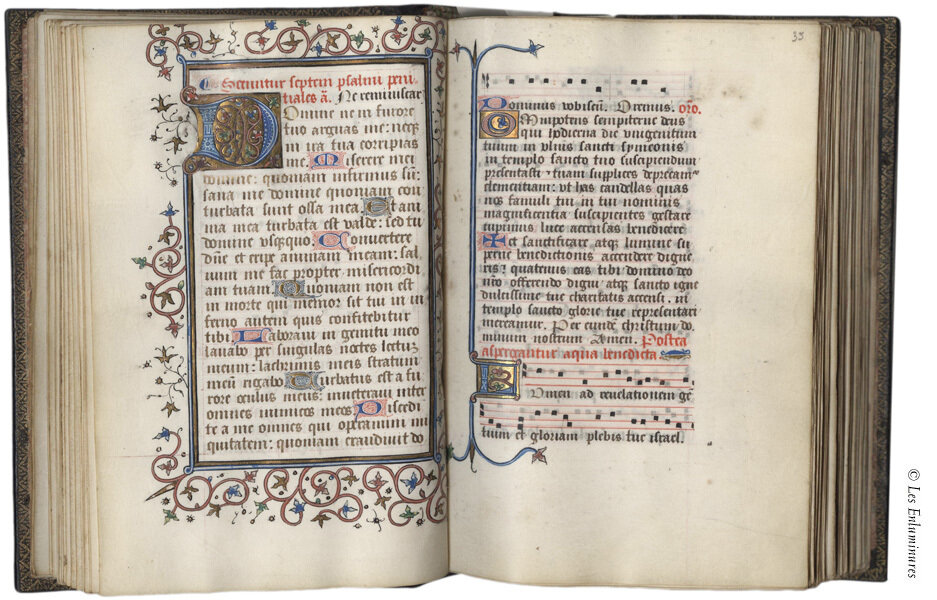 Secuntur septem psalmi peni-
tiales a. Ne reminiscar
Domine ne in furore
tuo arguas me: neqz
in ira tua corripias
me. Miserere mei
domine: quoniam infirmus sū:
sana me domine quoniam con
turbata sunt ossa mea. Et ani
ma mea turbata est valde: sed tu
domine usqzquo. Convertere
dñe et eripe animam meam: sal
uum me fac propter misericordi
am tuam. Quoniam non est
in morte qui memor sit tui in in
ferno autem quis confitebitur
tibi. Laboravi in gemitu meo
lavabo per singulas noctes lectuz
meum: lacrimis meis stratum
meū rigabo. Turbatus est a fu
rore oculus meus: inveteravi inter
omnes inimicos meos. Discedi
te a me omnes qui operamini ini
quitatem: quoniam exaudivit do
35
Dominus vobiscū. Oremus. oro.
Omnipotens sempiterne deus
qui hodierna die unigenitum
tuum in ulnis sancti symeonis
in templo sancto tuo suscipiendum
presentasti tuam supplices deprecam̃
clementiam: ut has candellas quas
nos famuli tui in tui nominis
magnificentia suscipientes gestare
cupimus luce accensas benedicere
et sanctificare atqz lumine su
perne benedictionis accendere digne
ris quatenus eas tibi domino deo
nr̄o offerendo digni atqz sancto igne
dulcissime tue charitatis accensi. in
templo sancto glorie tue representari
mereamur. Per eundē christum do
minum nostrum Amen. Postea
aspergantur aqua benedicta
Lumen ad revelationem gē
tium et gloriam plebis tue israel.
© Les Enluminures